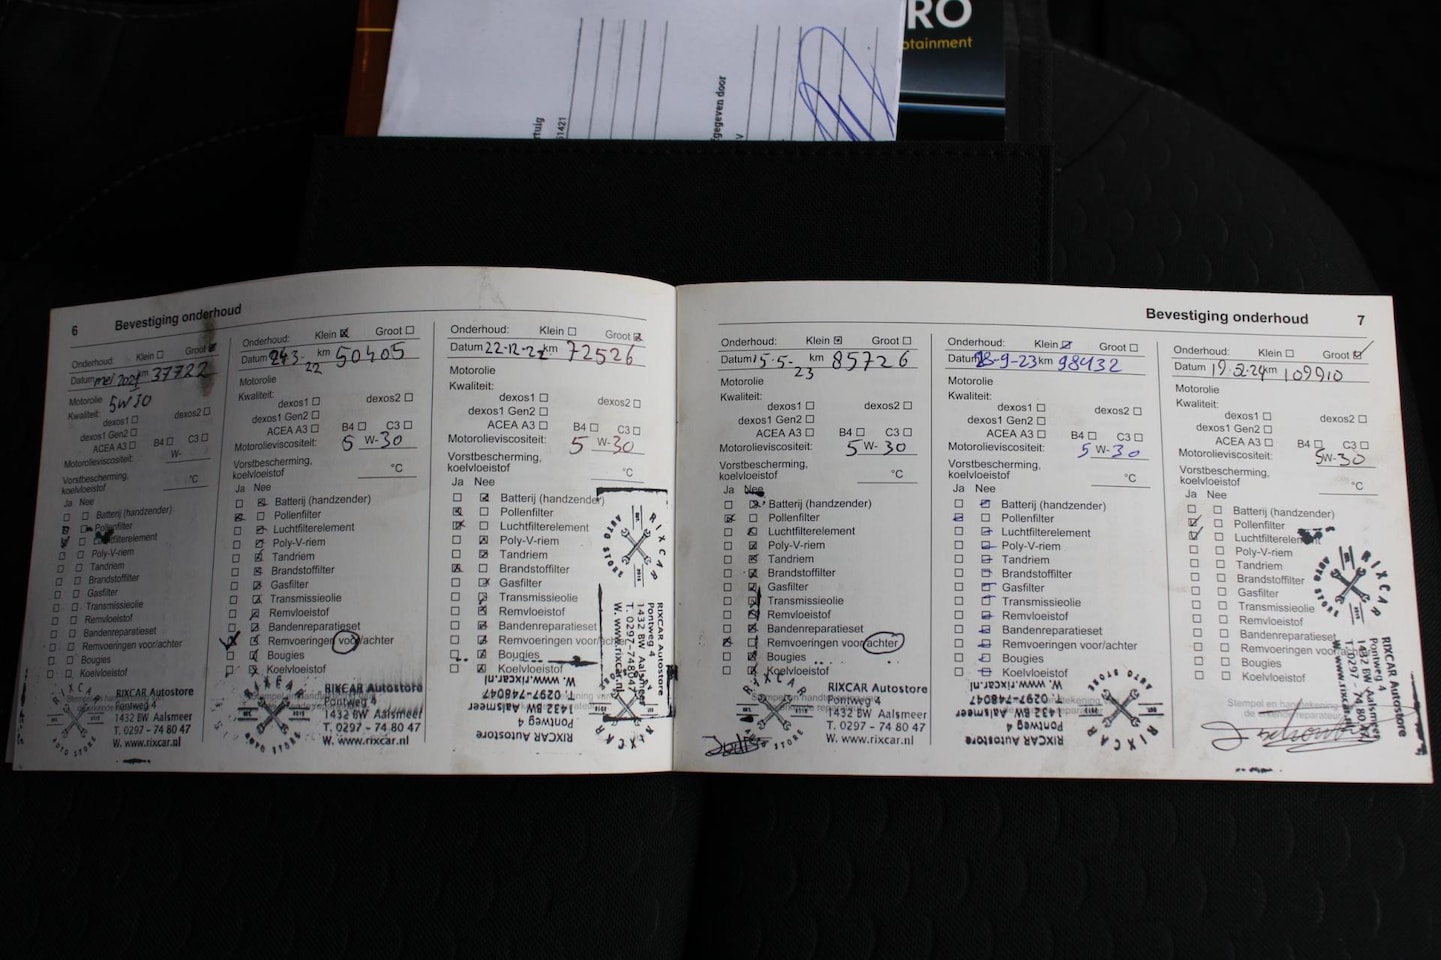 RO
otainment
gegeven door
6 Bevestiging onderhoud
Onderhoud: Klein Groot
Datum mei 2021 km 37722
Motorolie 5W30
Kwaliteit:
dexos1 dexos2
dexos1 Gen2
ACEA A3 B4 C3
Motorolieviscositeit: W-
Vorstbescherming,
koelvloeistof °C
Ja Nee
Batterij (handzender)
Pollenfilter
Luchtfilterelement
Poly-V-riem
Tandriem
Brandstoffilter
Gasfilter
Transmissieolie
Remvloeistof
Bandenreparatieset
Remvoeringen voor/achter
Bougies
Koelvloeistof
RIXCAR
AUTO STORE
RIXCAR Autostore
Pontweg 4
1432 BW Aalsmeer
T. 0297 - 74 80 47
W. www.rixcar.nl
Onderhoud: Klein Groot
Datum 24 3- 22 km 50405
Motorolie
Kwaliteit:
dexos1 dexos2
dexos1 Gen2
ACEA A3 B4 C3
Motorolieviscositeit: 5 W-30
Vorstbescherming,
koelvloeistof °C
Ja Nee
Batterij (handzender)
Pollenfilter
Luchtfilterelement
Poly-V-riem
Tandriem
Brandstoffilter
Gasfilter
Transmissieolie
Remvloeistof
Bandenreparatieset
Remvoeringen voor/achter
Bougies
Koelvloeistof
RIXCAR
AUTO STORE
RIXCAR Autostore
Pontweg 4
1432 BW Aalsmeer
T. 0297 - 74 80 47
W. www.rixcar.nl
Onderhoud: Klein Groot
Datum 22-12-22 km 72526
Motorolie
Kwaliteit:
dexos1 dexos2
dexos1 Gen2
ACEA A3 B4 C3
Motorolieviscositeit: 5 W-30
Vorstbescherming,
koelvloeistof °C
Ja Nee
Batterij (handzender)
Pollenfilter
Luchtfilterelement
Poly-V-riem
Tandriem
Brandstoffilter
Gasfilter
Transmissieolie
Remvloeistof
Bandenreparatieset
Remvoeringen voor/achter
Bougies
Koelvloeistof
RIXCAR
AUTO STORE
RIXCAR Autostore
Pontweg 4
1432 BW Aalsmeer
T. 0297-748047
W. www.rixcar.nl
RIXCAR
RIXCAR Autostore
Pontweg 4
1432 BW Aalsmeer
T. 0297-748047
W. www.rixcar.nl
Bevestiging onderhoud 7
Onderhoud: Klein Groot
Datum 15-5- 23 km 85726
Motorolie
Kwaliteit:
dexos1 dexos2
dexos1 Gen2
ACEA A3 B4 C3
Motorolieviscositeit: 5 W-30
Vorstbescherming,
koelvloeistof °C
Ja Nee
Batterij (handzender)
Pollenfilter
Luchtfilterelement
Poly-V-riem
Tandriem
Brandstoffilter
Gasfilter
Transmissieolie
Remvloeistof
Bandenreparatieset
Remvoeringen voor/achter
Bougies
Koelvloeistof
RIXCAR
AUTO STORE
RIXCAR Autostore
Pontweg 4
1432 BW Aalsmeer
T. 0297 - 74 80 47
W. www.rixcar.nl
Onderhoud: Klein Groot
Datum 18-9-23 km 98432
Motorolie
Kwaliteit:
dexos1 dexos2
dexos1 Gen2
ACEA A3 B4 C3
Motorolieviscositeit: 5 W-30
Vorstbescherming,
koelvloeistof °C
Ja Nee
Batterij (handzender)
Pollenfilter
Luchtfilterelement
Poly-V-riem
Tandriem
Brandstoffilter
Gasfilter
Transmissieolie
Remvloeistof
Bandenreparatieset
Remvoeringen voor/achter
Bougies
Koelvloeistof
RIXCAR
AUTO STORE
RIXCAR Autostore
Pontweg 4
1432 BW Aalsmeer
T. 0297-748047
W. www.rixcar.nl
Onderhoud: Klein Groot
Datum 19.2.24 km 109910
Motorolie
Kwaliteit:
dexos1 dexos2
dexos1 Gen2
ACEA A3 B4 C3
Motorolieviscositeit: 5W-30
Vorstbescherming,
koelvloeistof °C
Ja Nee
Batterij (handzender)
Pollenfilter
Luchtfilterelement
Poly-V-riem
Tandriem
Brandstoffilter
Gasfilter
Transmissieolie
Remvloeistof
Bandenreparatieset
Remvoeringen voor/achter
Bougies
Koelvloeistof
Stempel en handtekening
RIXCAR
AUTO STORE
RIXCAR Autostore
Pontweg 4
1432 BW Aalsmeer
T. 0297 - 74 80 47
W. www.rixcar.nl